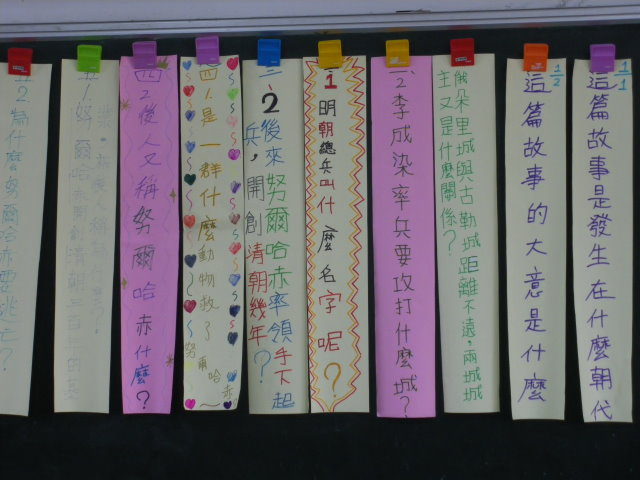 1/1
這篇故事是發生在什麼朝代
1/2
這篇故事的大意是什麼
俄朵里城與古勒城距離不遠，兩城城
主又是什麼關係？
二、2李成染率兵要攻打什麼城？
三、1明朝總兵叫什麼名字呢？
三、2後來努爾哈赤率領手下起
兵，開創清朝幾年？
四、1.是一群什麼動物救了努爾哈赤~
四、2後人又稱努爾哈赤什麼？
五、1.努爾哈赤開創清朝三百年的基
五、2為什麼努爾哈赤要逃亡？